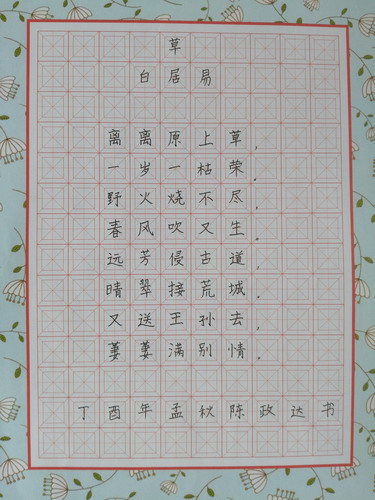 草
白居易
离离原上草，
一岁一枯荣。
野火烧不尽，
春风吹又生。
远芳侵古道，
晴翠接荒城。
又送王孙去，
萋萋满别情。
丁酉年孟秋陈政达书